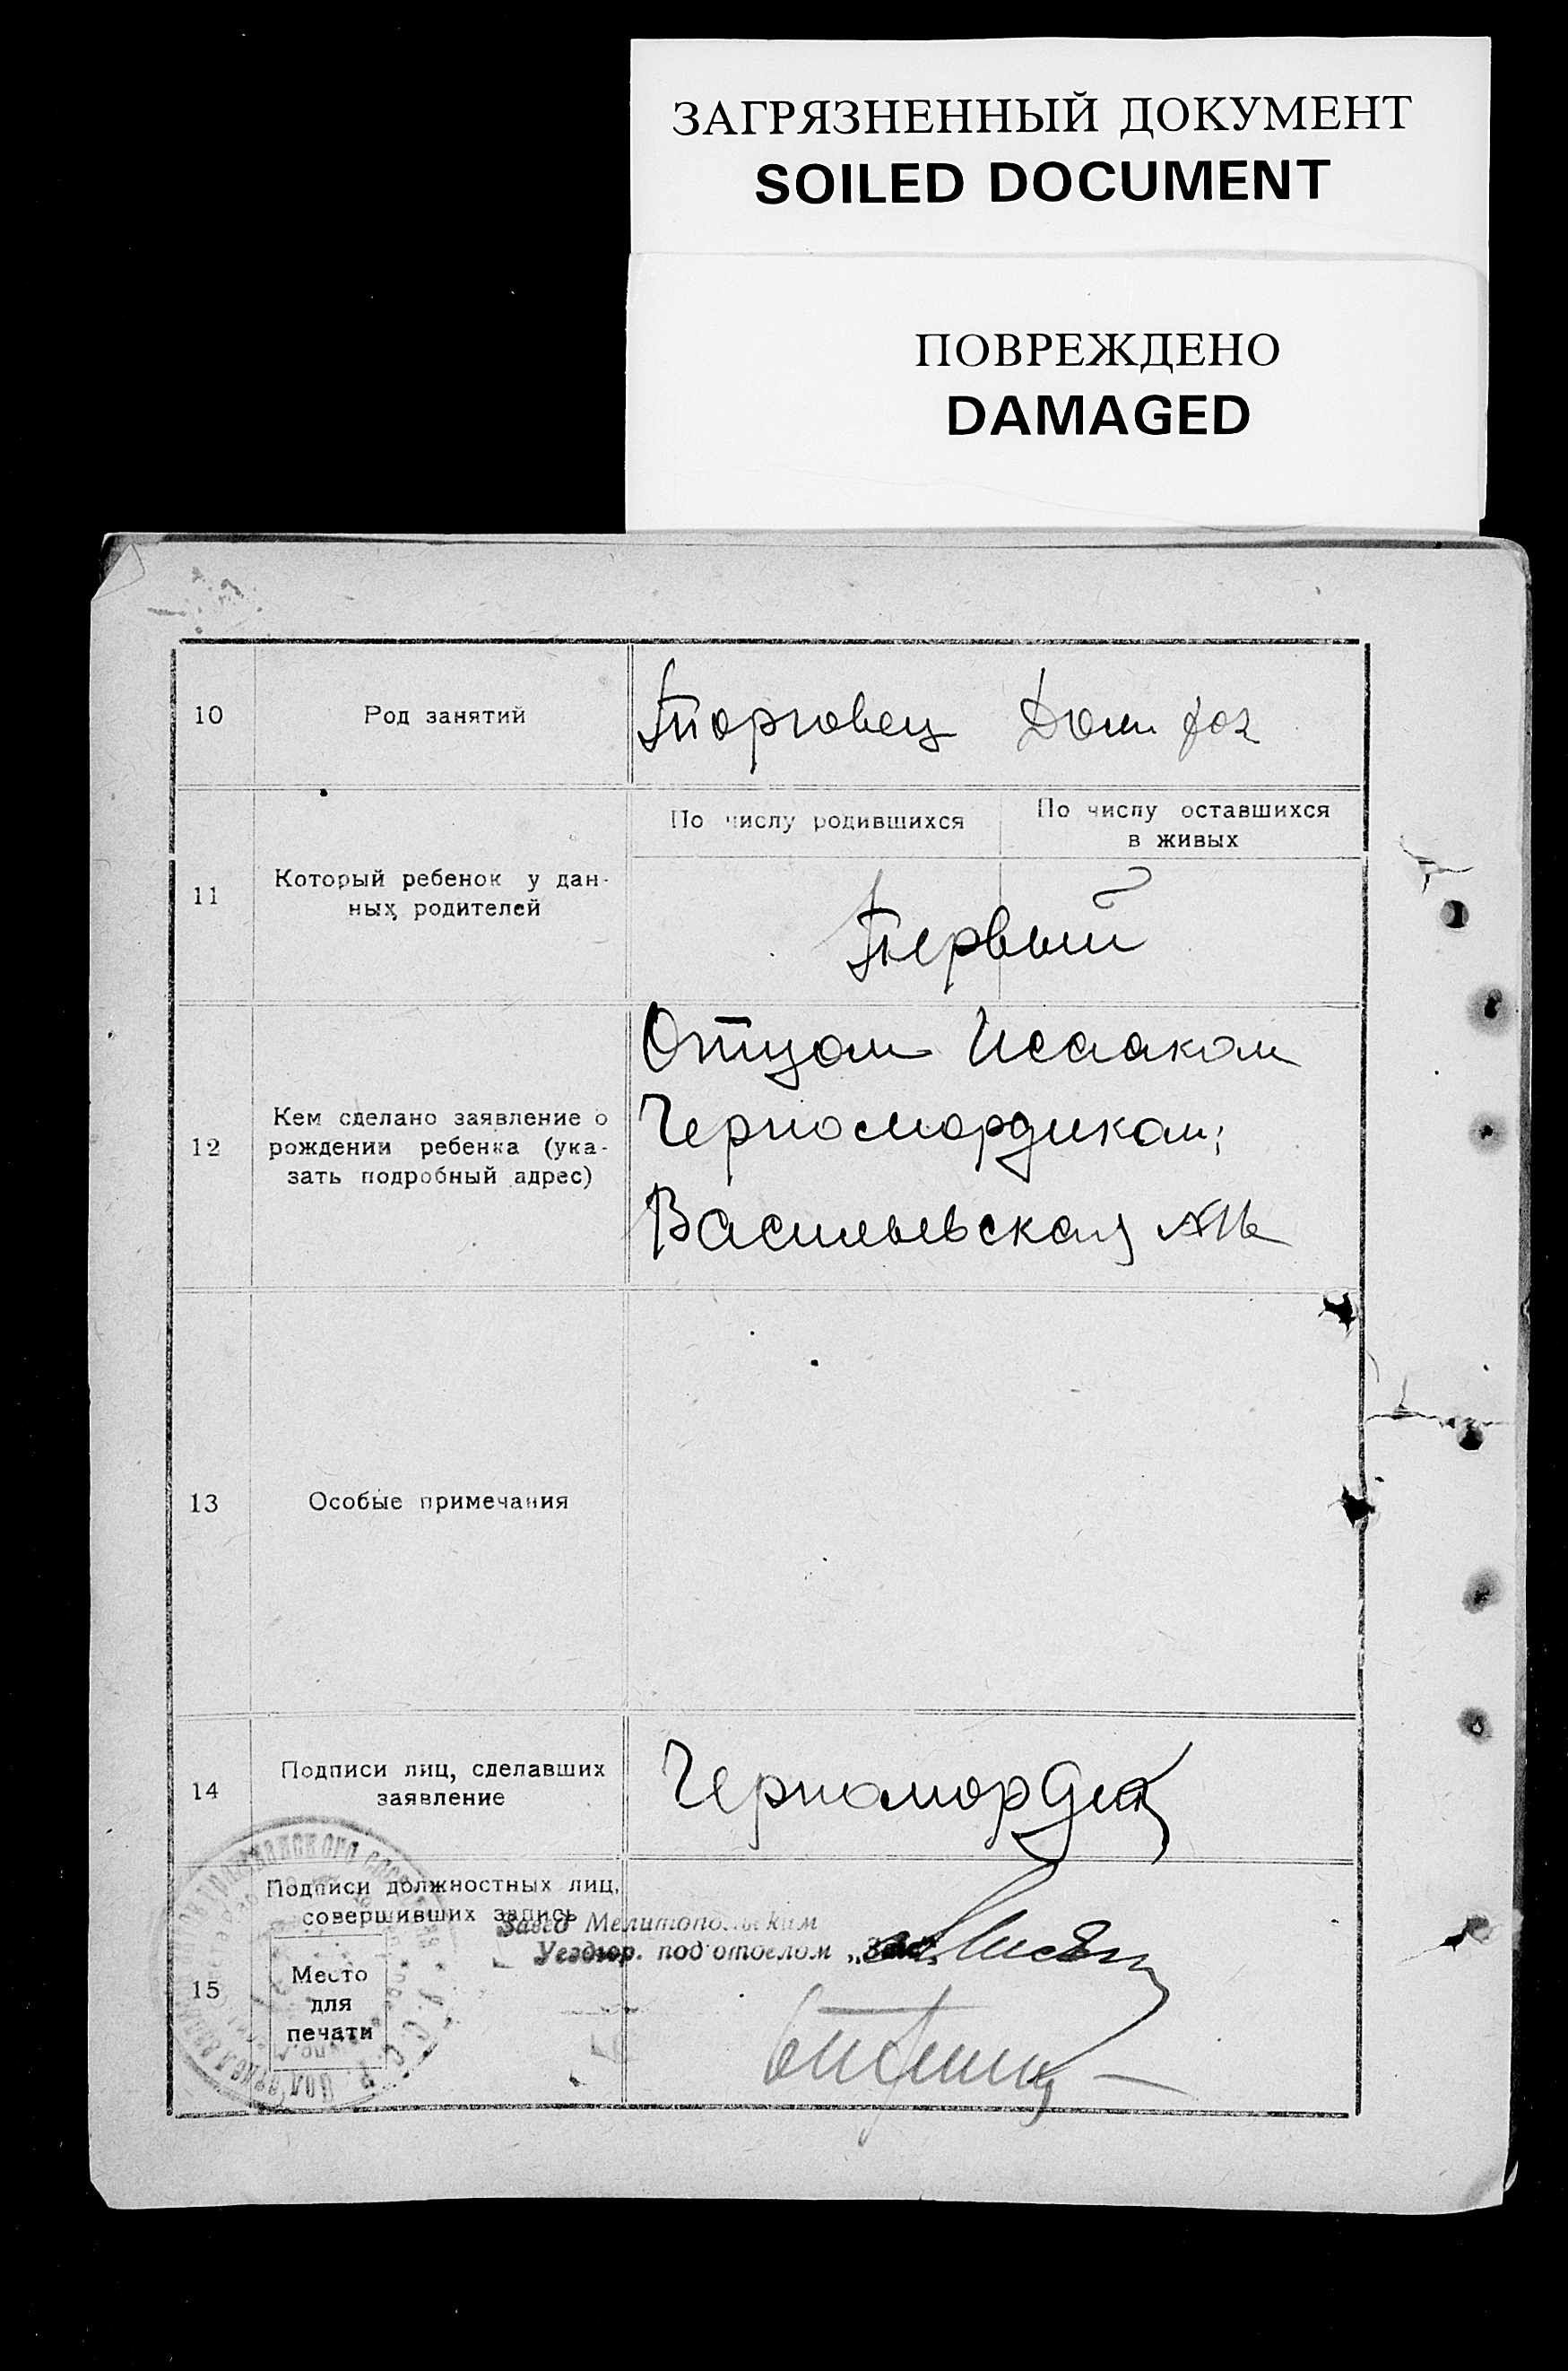 ЗАГРЯЗНЕННЫЙ ДОКУМЕНТ
SOILED DOCUMENT
ПОВРЕЖДЕНО
DAMAGED
10 Род занятий Торговец Дом хоз
11 Который ребенок у дан-
ных родителей
По числу родившихся
По числу оставшихся
в живых
Первый
12 Кем сделано заявление о
рождении ребенка (ука-
зать подробный адрес)
Отцом Исааком
Черномордиком;
Васильевская
13 Особые примечания
14 Подписи лиц, сделавших
заявление
Черномордик
15 Подписи должностных лиц,
совершивших запись
Место
для
печати
Завед Мелитопольским
Уездюр. подотделом